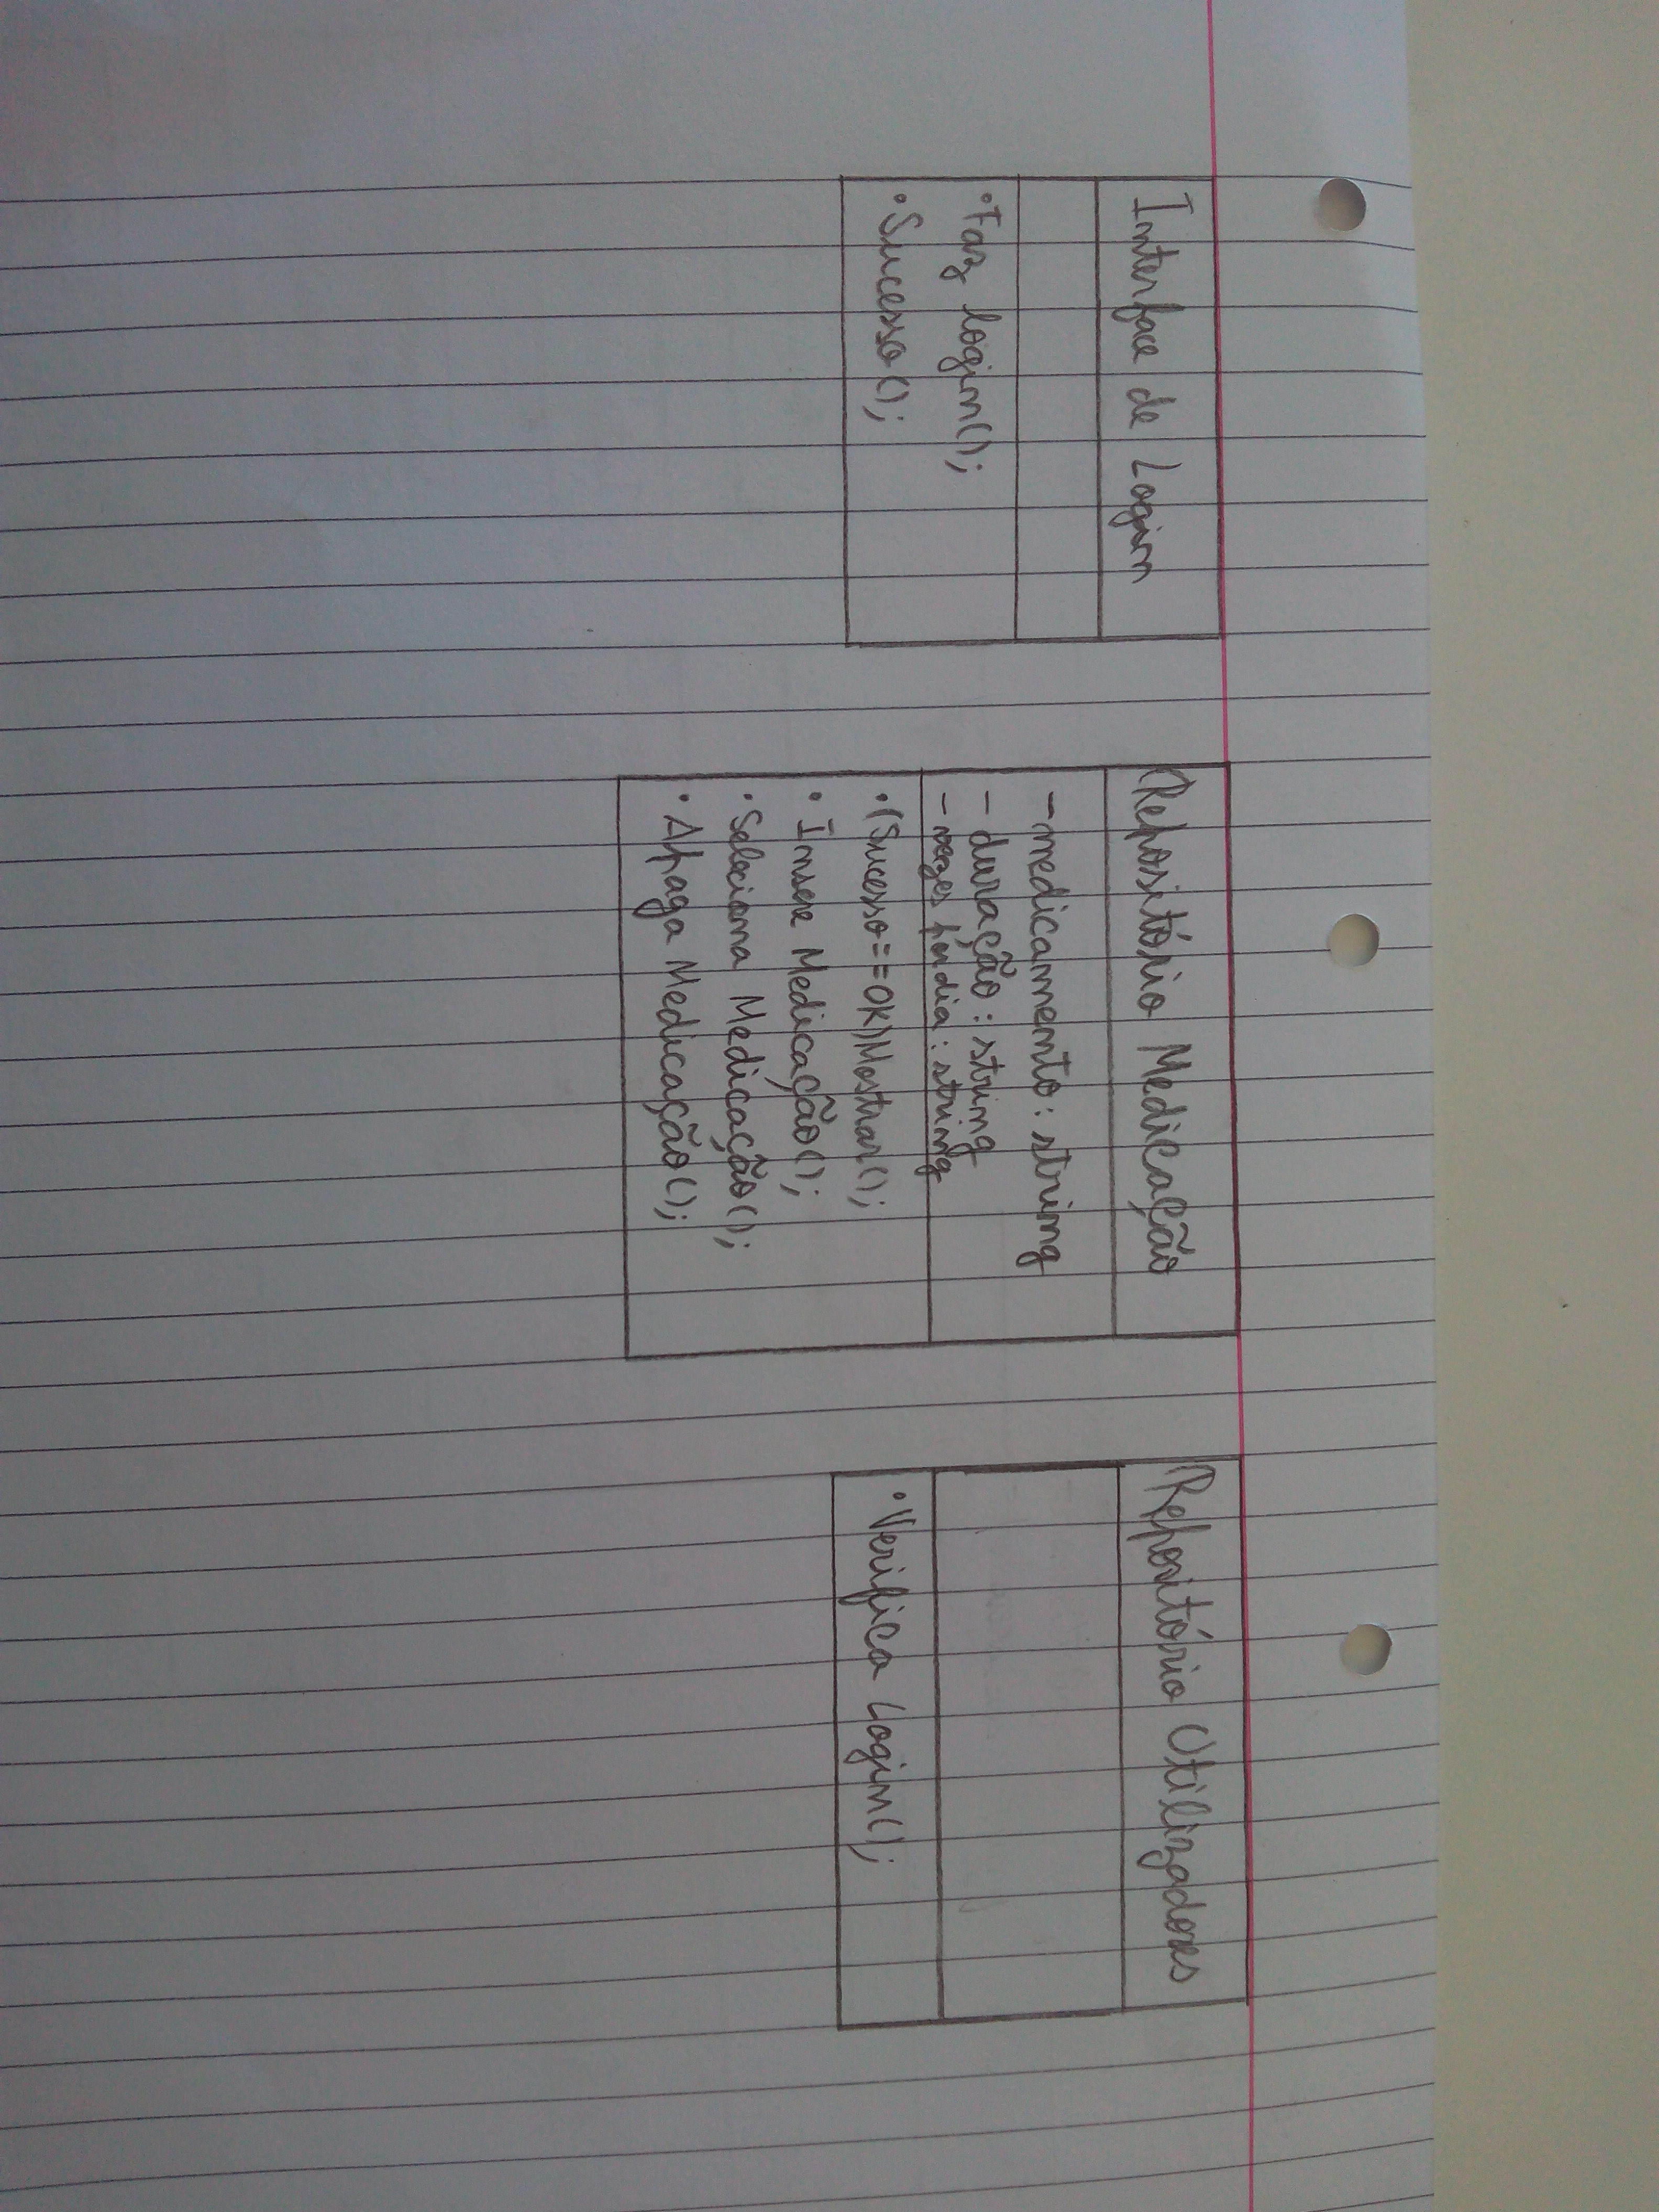 Interface de Login
•Faz login();
•Sucesso();
Repositório Medicação
- medicamento: string
- duração: string
- vezes por dia: string
•(Sucesso==OK)Mostrar();
• Insere Medicação();
•Seleciona Medicação();
• Apaga Medicação();
Repositório Utilizadores
•Verifica Login();